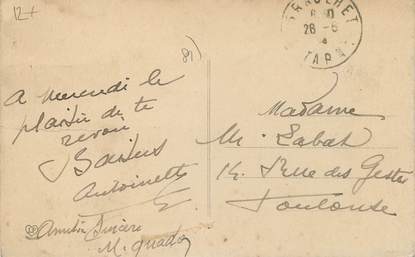 12+
81)
GRAULHET
28-6
TARN
A mercredi le
plaisir de te
revoir
Baisers
Antoinette
Amitié Sincère
Madame
M. Labat
14. Rue des Gestes
Toulouse